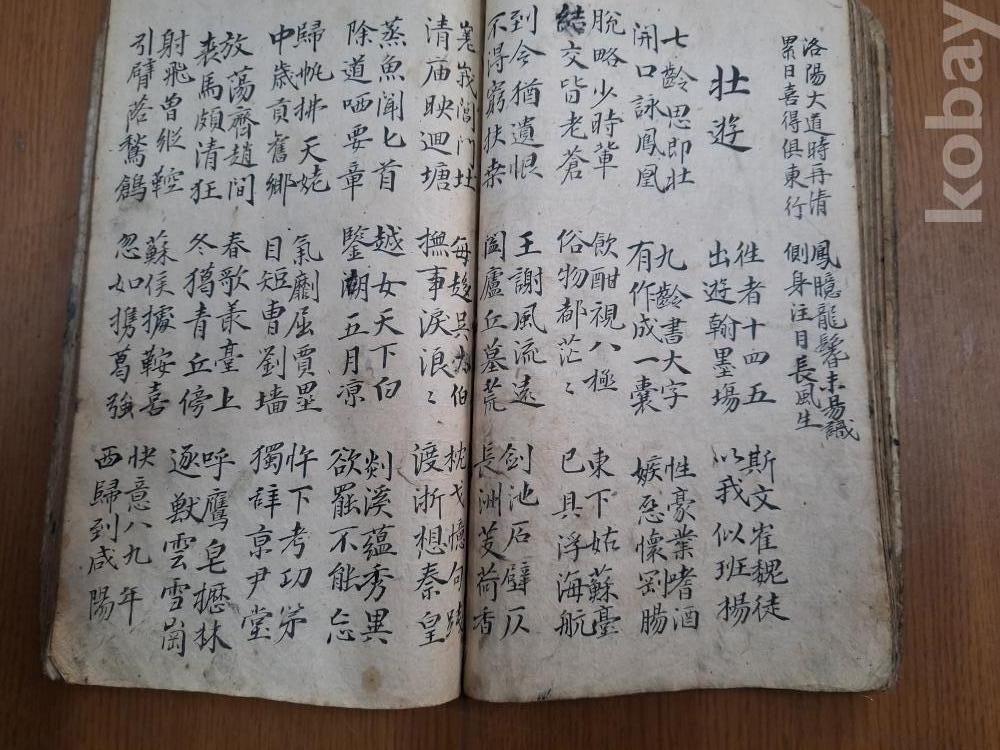 洛陽大道時再清
累日喜得俱東行
鳳臆龍鬐未易識
側身注目長風生
壮遊
徃者十四五
出遊翰墨塲
斯文崔魏徒
以我似班楊
七齡思即壮
開口詠鳳凰
九齡書大字
有作成一囊
性豪業嗜酒
嫉惡懷剛腸
脫略少時輩
結交皆老蒼
飲酣視八極
俗物都茫〻
東下姑蘇臺
已具浮海航
到今猶遺恨
不得窮扶桒
王謝風流遠
闔廬丘墓荒
剑池石壁仄
長洲芰荷香
嵬峩閶門北
清庙映迴塘
每趍吳太伯
撫事淚浪〻
枕戈憶句踐
渡浙想秦皇
蒸魚聞匕首
除道哂要章
越女天下白
鑒湖五月凉
剡溪蘊秀異
欲罷不能忘
歸帆拂天姥
中歲貢舊鄉
氣劘屈賈壘
目短曹劉墻
忤下考功第
獨辞京尹堂
放蕩齊趙間
裘馬頗清狂
春歌叢臺上
冬獦青丘傍
呼鷹皂櫪林
逐獸雲雪崗
射飛曾縱鞚
引臂落鶖鶬
蘇侯據鞍喜
忽如携葛強
快意八九年
西歸到咸陽
kobay